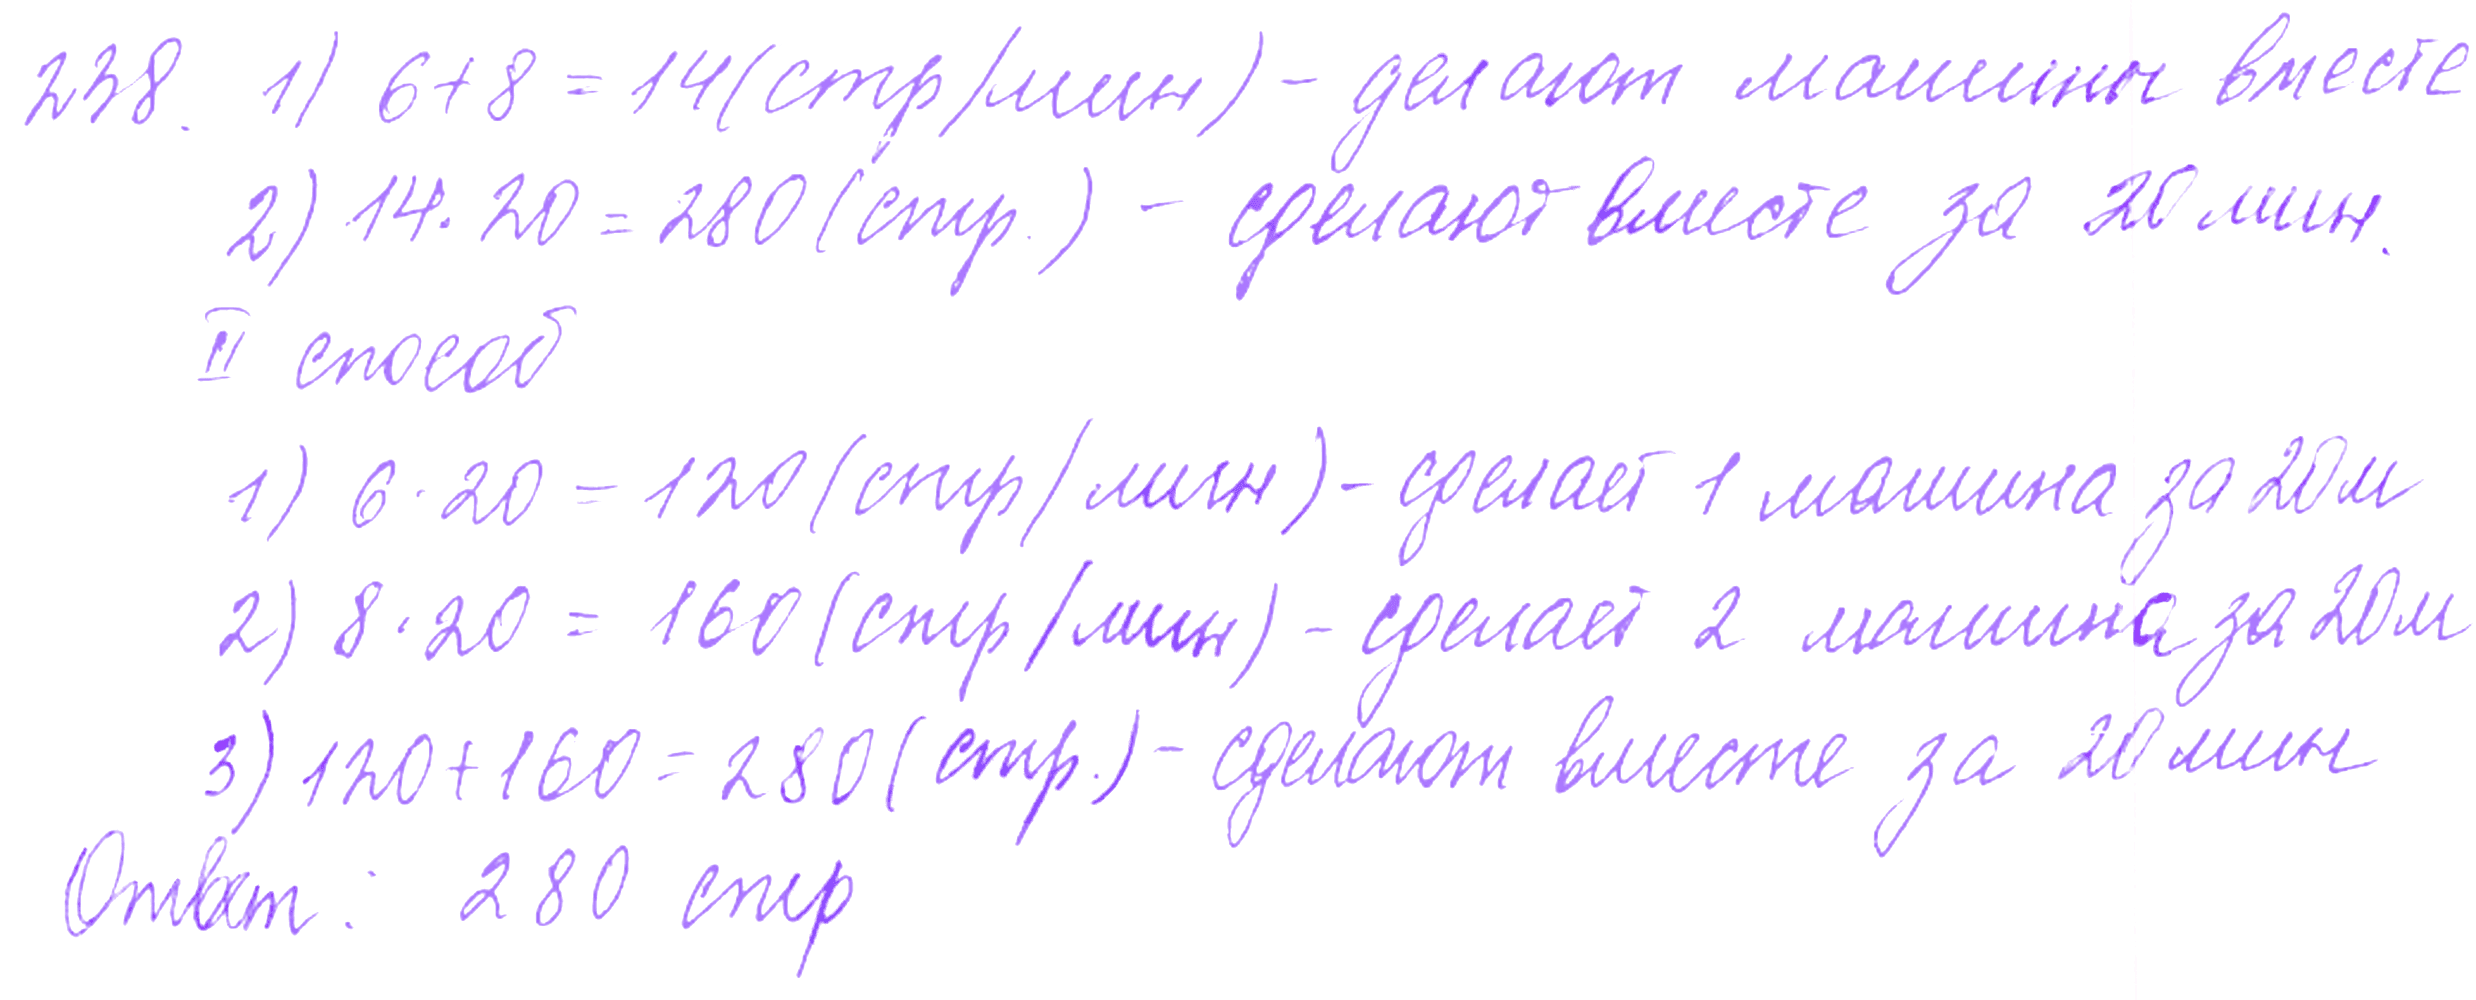 238. 1) 6+8 = 14 (стр/мин) - делают машины вместе
2) 14·20 = 280 (стр.) - сделают вместе за 20 мин.
II способ
1) 6·20 = 120 (стр/мин) - сделает 1 машина за 20м
2) 8·20 = 160 (стр/мин) - сделает 2 машина за 20м
3) 120+160 = 280 (стр.) - сделают вместе за 20 мин
Ответ: 280 стр